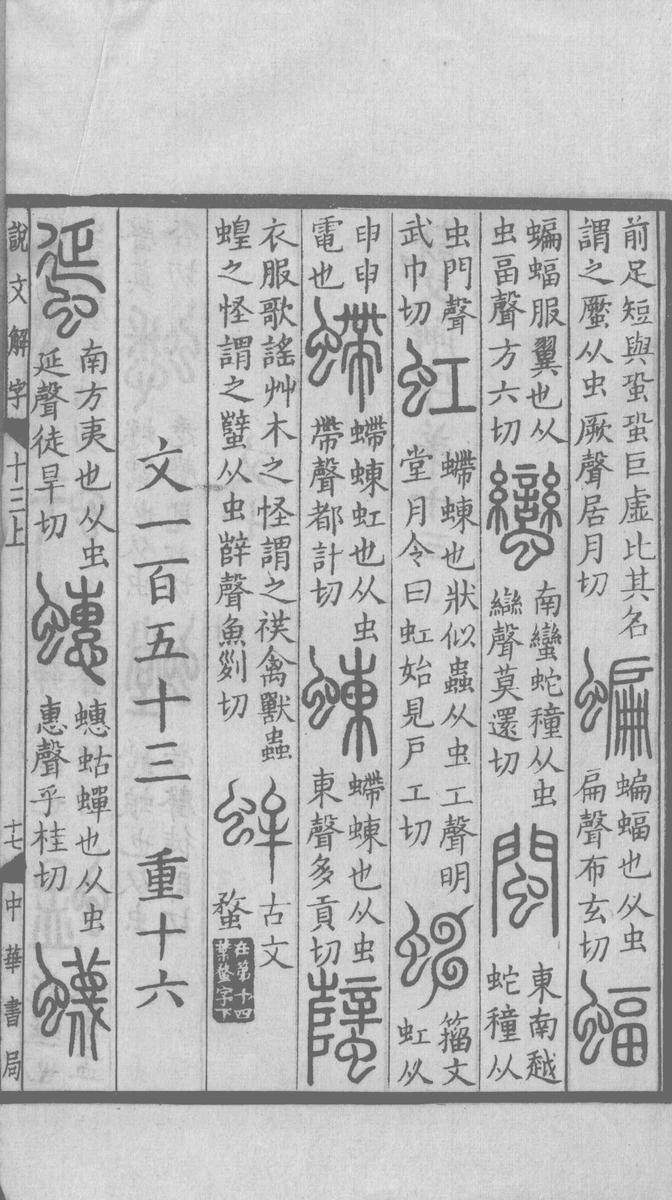 前足短與蛩蛩巨虛比其名
謂之蟨从虫厥聲居月切
蝙
蝙蝠也从虫
扁聲布玄切
蝠
蝙蝠服翼也从
虫畐聲方六切
蠻
南蠻蛇穜从虫
䜌聲莫還切
閩
東南越
蛇穜从
虫門聲
武巾切
虹
螮蝀也狀似蟲从虫工聲明
堂月令曰虹始見戶工切
𧈫
籀文
虹从
申申
電也
螮
螮蝀虹也从虫
帶聲都計切
蝀
螮蝀也从虫
東聲多貢切
蠥
衣服歌謠艸木之怪謂之䄏禽獸蟲
蝗之怪謂之蠥从虫辥聲魚列切
蛑
古文
蝥
在第十四
葉蝥字下
文一百五十三 重十六
蜑
南方夷也从虫
延聲徒旱切
蟪
蟪蛄蟬也从虫
惠聲乎桂切
蠛
說文解字 十三上 十七 中華書局